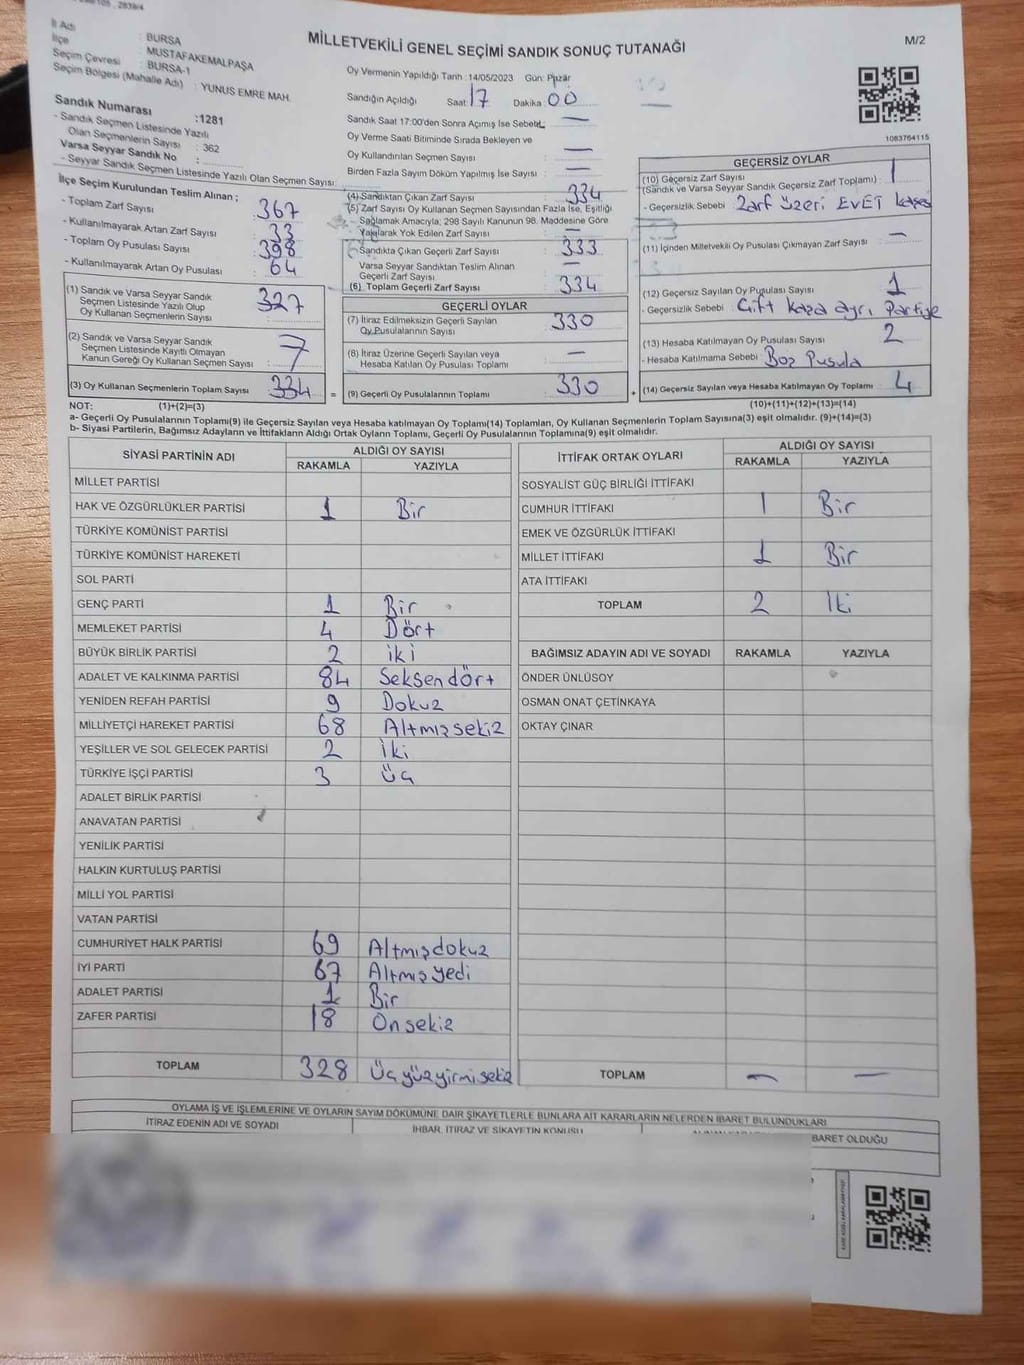 2839/4
İl Adı : BURSA
İlçe : MUSTAFAKEMALPAŞA
Seçim Çevresi : BURSA-1
Seçim Bölgesi (Mahalle Adı) : YUNUS EMRE MAH.
Sandık Numarası :1281
- Sandık Seçmen Listesinde Yazılı
Olan Seçmenlerin Sayısı : 362
Varsa Seyyar Sandık No :
- Seyyar Sandık Seçmen Listesinde Yazılı Olan Seçmen Sayısı:
MİLLETVEKİLİ GENEL SEÇİMİ SANDIK SONUÇ TUTANAĞI
M/2
Oy Vermenin Yapıldığı Tarih :14/05/2023 Gün: Pazar
Sandığın Açıldığı Saat: 17 Dakika: 00
Sandık Saat 17:00'den Sonra Açımış İse Sebebi: —
Oy Verme Saati Bitiminde Sırada Bekleyen ve
Oy Kullandırılan Seçmen Sayısı : —
Birden Fazla Sayım Döküm Yapılmış İse Sayısı : —
1083764115
İlçe Seçim Kurulundan Teslim Alınan ;
- Toplam Zarf Sayısı : 367
- Kullanılmayarak Artan Zarf Sayısı : 33
- Toplam Oy Pusulası Sayısı : 398
- Kullanılmayarak Artan Oy Pusulası : 64
(1) Sandık ve Varsa Seyyar Sandık
Seçmen Listesinde Yazılı Olup
Oy Kullanan Seçmenlerin Sayısı : 327
(2) Sandık ve Varsa Seyyar Sandık
Seçmen Listesinde Kayıtlı Olmayan
Kanun Gereği Oy Kullanan Seçmen Sayısı : 7
(3) Oy Kullanan Seçmenlerin Toplam Sayısı : 334
(4) Sandıktan Çıkan Zarf Sayısı : 334
(5) Zarf Sayısı Oy Kullanan Seçmen Sayısından Fazla İse, Eşitliği
Sağlamak Amacıyla, 298 Sayılı Kanunun 98. Maddesine Göre
Yakılarak Yok Edilen Zarf Sayısı : —
Sandıkta Çıkan Geçerli Zarf Sayısı : 333
Varsa Seyyar Sandıktan Teslim Alınan
Geçerli Zarf Sayısı : —
(6) Toplam Geçerli Zarf Sayısı : 334
GEÇERLİ OYLAR
(7) İtiraz Edilmeksizin Geçerli Sayılan
Oy Pusulalarının Sayısı : 330
(8) İtiraz Üzerine Geçerli Sayılan veya
Hesaba Katılan Oy Pusulası Toplamı : —
= (9) Geçerli Oy Pusulalarının Toplamı : 330
GEÇERSİZ OYLAR
(10) Geçersiz Zarf Sayısı
(Sandık ve Varsa Seyyar Sandık Geçersiz Zarf Toplamı) : 1
- Geçersizlik Sebebi : Zarf üzeri EVET kaşesi
(11) İçinden Milletvekili Oy Pusulası Çıkmayan Zarf Sayısı : —
(12) Geçersiz Sayılan Oy Pusulası Sayısı : 1
- Geçersizlik Sebebi : Çift kaşe ayrı Partiye
(13) Hesaba Katılmayan Oy Pusulası Sayısı : 2
- Hesaba Katılmama Sebebi : Boş Pusula
+ (14) Geçersiz Sayılan veya Hesaba Katılmayan Oy Toplamı : 4
NOT: (1)+(2)=(3) (10)+(11)+(12)+(13)=(14)
a- Geçerli Oy Pusulalarının Toplamı(9) ile Geçersiz Sayılan veya Hesaba katılmayan Oy Toplamı(14) Toplamları, Oy Kullanan Seçmenlerin Toplam Sayısına(3) eşit olmalıdır. (9)+(14)=(3)
b- Siyasi Partilerin, Bağımsız Adayların ve İttifakların Aldığı Ortak Oyların Toplamı, Geçerli Oy Pusulalarının Toplamına(9) eşit olmalıdır.
SİYASİ PARTİNİN ADI ALDIĞI OY SAYISI
RAKAMLA YAZIYLA
MİLLET PARTİSİ
HAK VE ÖZGÜRLÜKLER PARTİSİ 1 Bir
TÜRKİYE KOMÜNİST PARTİSİ
TÜRKİYE KOMÜNİST HAREKETİ
SOL PARTİ
GENÇ PARTİ 1 Bir
MEMLEKET PARTİSİ 4 Dört
BÜYÜK BİRLİK PARTİSİ 2 iki
ADALET VE KALKINMA PARTİSİ 84 Seksendört
YENİDEN REFAH PARTİSİ 9 Dokuz
MİLLİYETÇİ HAREKET PARTİSİ 68 Altmışsekiz
YEŞİLLER VE SOL GELECEK PARTİSİ 2 İki
TÜRKİYE İŞÇİ PARTİSİ 3 Üç
ADALET BİRLİK PARTİSİ
ANAVATAN PARTİSİ
YENİLİK PARTİSİ
HALKIN KURTULUŞ PARTİSİ
MİLLİ YOL PARTİSİ
VATAN PARTİSİ
CUMHURİYET HALK PARTİSİ 69 Altmışdokuz
İYİ PARTİ 67 Altmış yedi
ADALET PARTİSİ 1 Bir
ZAFER PARTİSİ 18 Onsekiz
TOPLAM 328 Üçyüzyirmisekiz
İTTİFAK ORTAK OYLARI ALDIĞI OY SAYISI
RAKAMLA YAZIYLA
SOSYALİST GÜÇ BİRLİĞİ İTTİFAKI
CUMHUR İTTİFAKI 1 Bir
EMEK VE ÖZGÜRLÜK İTTİFAKI
MİLLET İTTİFAKI 1 Bir
ATA İTTİFAKI
TOPLAM 2 İki
BAĞIMSIZ ADAYIN ADI VE SOYADI RAKAMLA YAZIYLA
ÖNDER ÜNLÜSOY
OSMAN ONAT ÇETİNKAYA
OKTAY ÇINAR
TOPLAM — —
OYLAMA İŞ VE İŞLEMLERİNE VE OYLARIN SAYIM DÖKÜMÜNE DAİR ŞİKAYETLERLE BUNLARA AİT KARARLARIN NELERDEN İBARET BULUNDUKLARI
İTİRAZ EDENİN ADI VE SOYADI İHBAR, İTİRAZ VE ŞİKAYETİN KONUSU BARET OLDUĞU